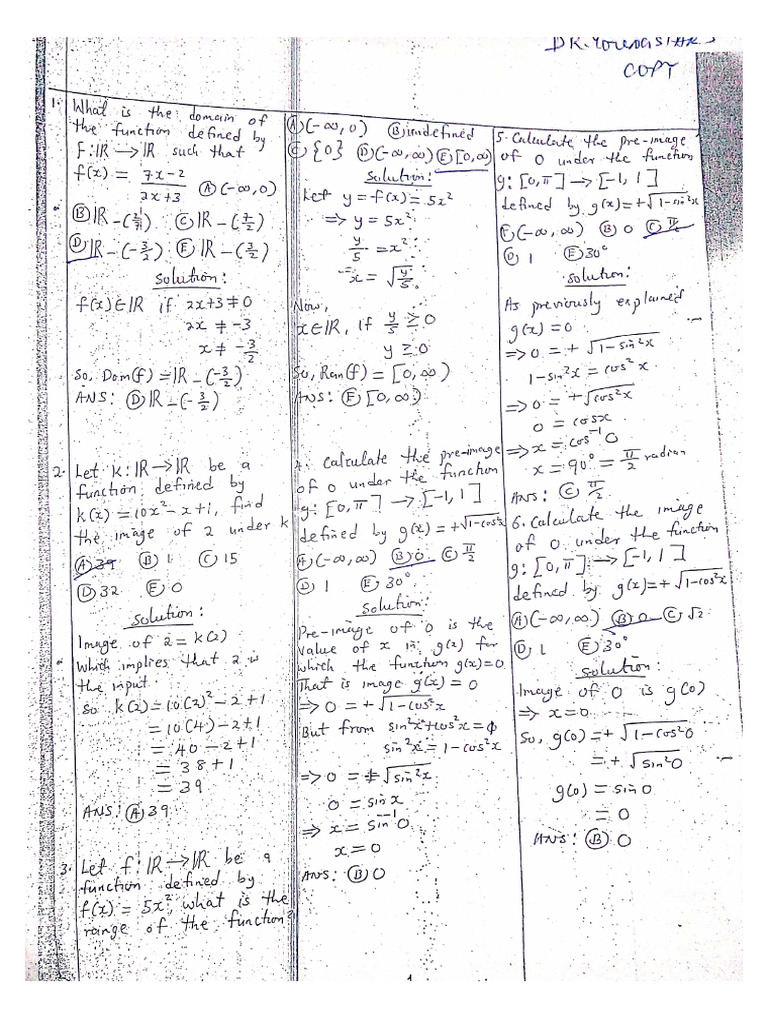 COPY
1. What is the domain of
the function defined by
f:IR → IR such that
f(x) = 7x-2 / 2x+3 Ⓐ(-∞,0)
Ⓑ IR - (2/7) Ⓒ IR - (7/2)
Ⓓ IR - (-3/2) Ⓔ IR - (3/2)
Solution:
f(x) ∈ IR if 2x+3 ≠ 0
2x ≠ -3
x ≠ -3/2
So, Dom(f) = IR - (-3/2)
ANS: Ⓓ IR - (-3/2)
2. Let k:IR → IR be a
function defined by
k(x) = 10x² - x + 1, find
the image of 2 under k
Ⓐ 39 Ⓑ 1 Ⓒ 15
Ⓓ 32 Ⓔ 0
Solution:
Image of 2 = k(2)
Which implies that 2 is
the input.
So k(2) = 10(2)² - 2 + 1
= 10(4) - 2 + 1
= 40 - 2 + 1
= 38 + 1
= 39
ANS: Ⓐ 39
3. Let f:IR → IR be a
function defined by
f(x) = 5x², what is the
range of the function?
Ⓐ(-∞,0) Ⓑ undefined
Ⓒ {0} Ⓓ(-∞,∞) Ⓔ[0,∞)
Solution:
Let y = f(x) = 5x²
⇒ y = 5x²
y/5 = x²
x = √y/5
Now,
x ∈ IR, if y/5 ≥ 0
y ≥ 0
So, Ran(f) = [0,∞)
ANS: Ⓔ [0,∞)
4. Calculate the pre-image
of 0 under the function
g: [0,π] → [-1,1]
defined by g(x) = +√1-cos²x
Ⓐ(-∞,∞) Ⓑ 0 Ⓒ π/2
Ⓓ 1 Ⓔ 30°
Solution:
Pre-image of 0 is the
value of x in g(x) for
which the function g(x)=0
That is image g(x) = 0
⇒ 0 = +√1-cos²x
But from sin²x+cos²x=1
sin²x = 1-cos²x
⇒ 0 = +√sin²x
0 = sinx
⇒ x = sin⁻¹0
x = 0
ANS: Ⓑ 0
5. Calculate the pre-image
of 0 under the function
g: [0,π] → [-1,1]
defined by g(x) = +√1-sin²x
Ⓐ(-∞,∞) Ⓑ 0 Ⓒ π/2
Ⓓ 1 Ⓔ 30°
Solution:
As previously explained
g(x) = 0
⇒ 0 = +√1-sin²x
1-sin²x = cos²x
⇒ 0 = +√cos²x
0 = cosx
⇒ x = cos⁻¹0
x = 90° = π/2 radian
ANS: Ⓒ π/2
6. Calculate the image
of 0 under the function
g: [0,π] → [-1,1]
defined by g(x) = +√1-cos²x
Ⓐ(-∞,∞) Ⓑ 0 Ⓒ √2
Ⓓ 1 Ⓔ 30°
Solution:
Image of 0 is g(0)
⇒ x = 0
So, g(0) = +√1-cos²0
= +√sin²0
g(0) = sin0
= 0
ANS: Ⓑ 0
1